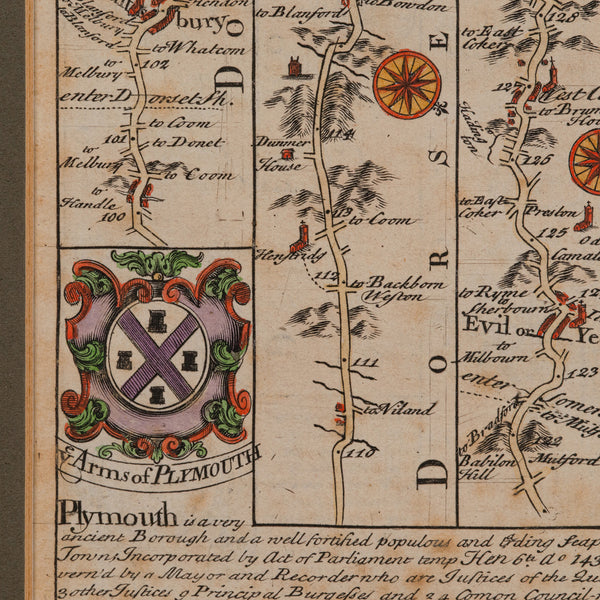 bury
to Blanford
to Whatcom
to Melbury
102
enter Dorset Sh.
to Coom
101
to Donet
to Melbury
to Coom
to Handle
100
D
to Blanford
to Bowdon
114
Dunmer House
113
to Coom
Henstridg
112
to Backborn Weston
111
to Viland
110
D O R S E
to East Coker
128
127
West C
to Brym
Ho
126
to East Coker
Preston
125
Camal
to Ryme
to Sherbourn
Evil or Ye
to Milbourn
123
enter
Somer
to Bradford
122
Babilon Hill
Mutford
ye Arms of PLYMOUTH
Plymouth is a very
ancient Borough and a well fortified populous and trading Seap
Town, Incorporated by Act of Parliament temp Hen 6th Ao 143
vern'd by a Mayor and Recorder who are Justices of the Qu
3 other Justices 9 Principal Burgesses and 24 Comon Council-